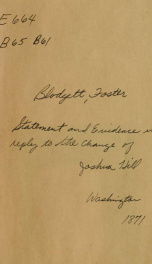 E664
B65 B61
Blodgett, Foster
Statement and Evidence in
reply to the Charge of
Joshua Hill
Washington
1871